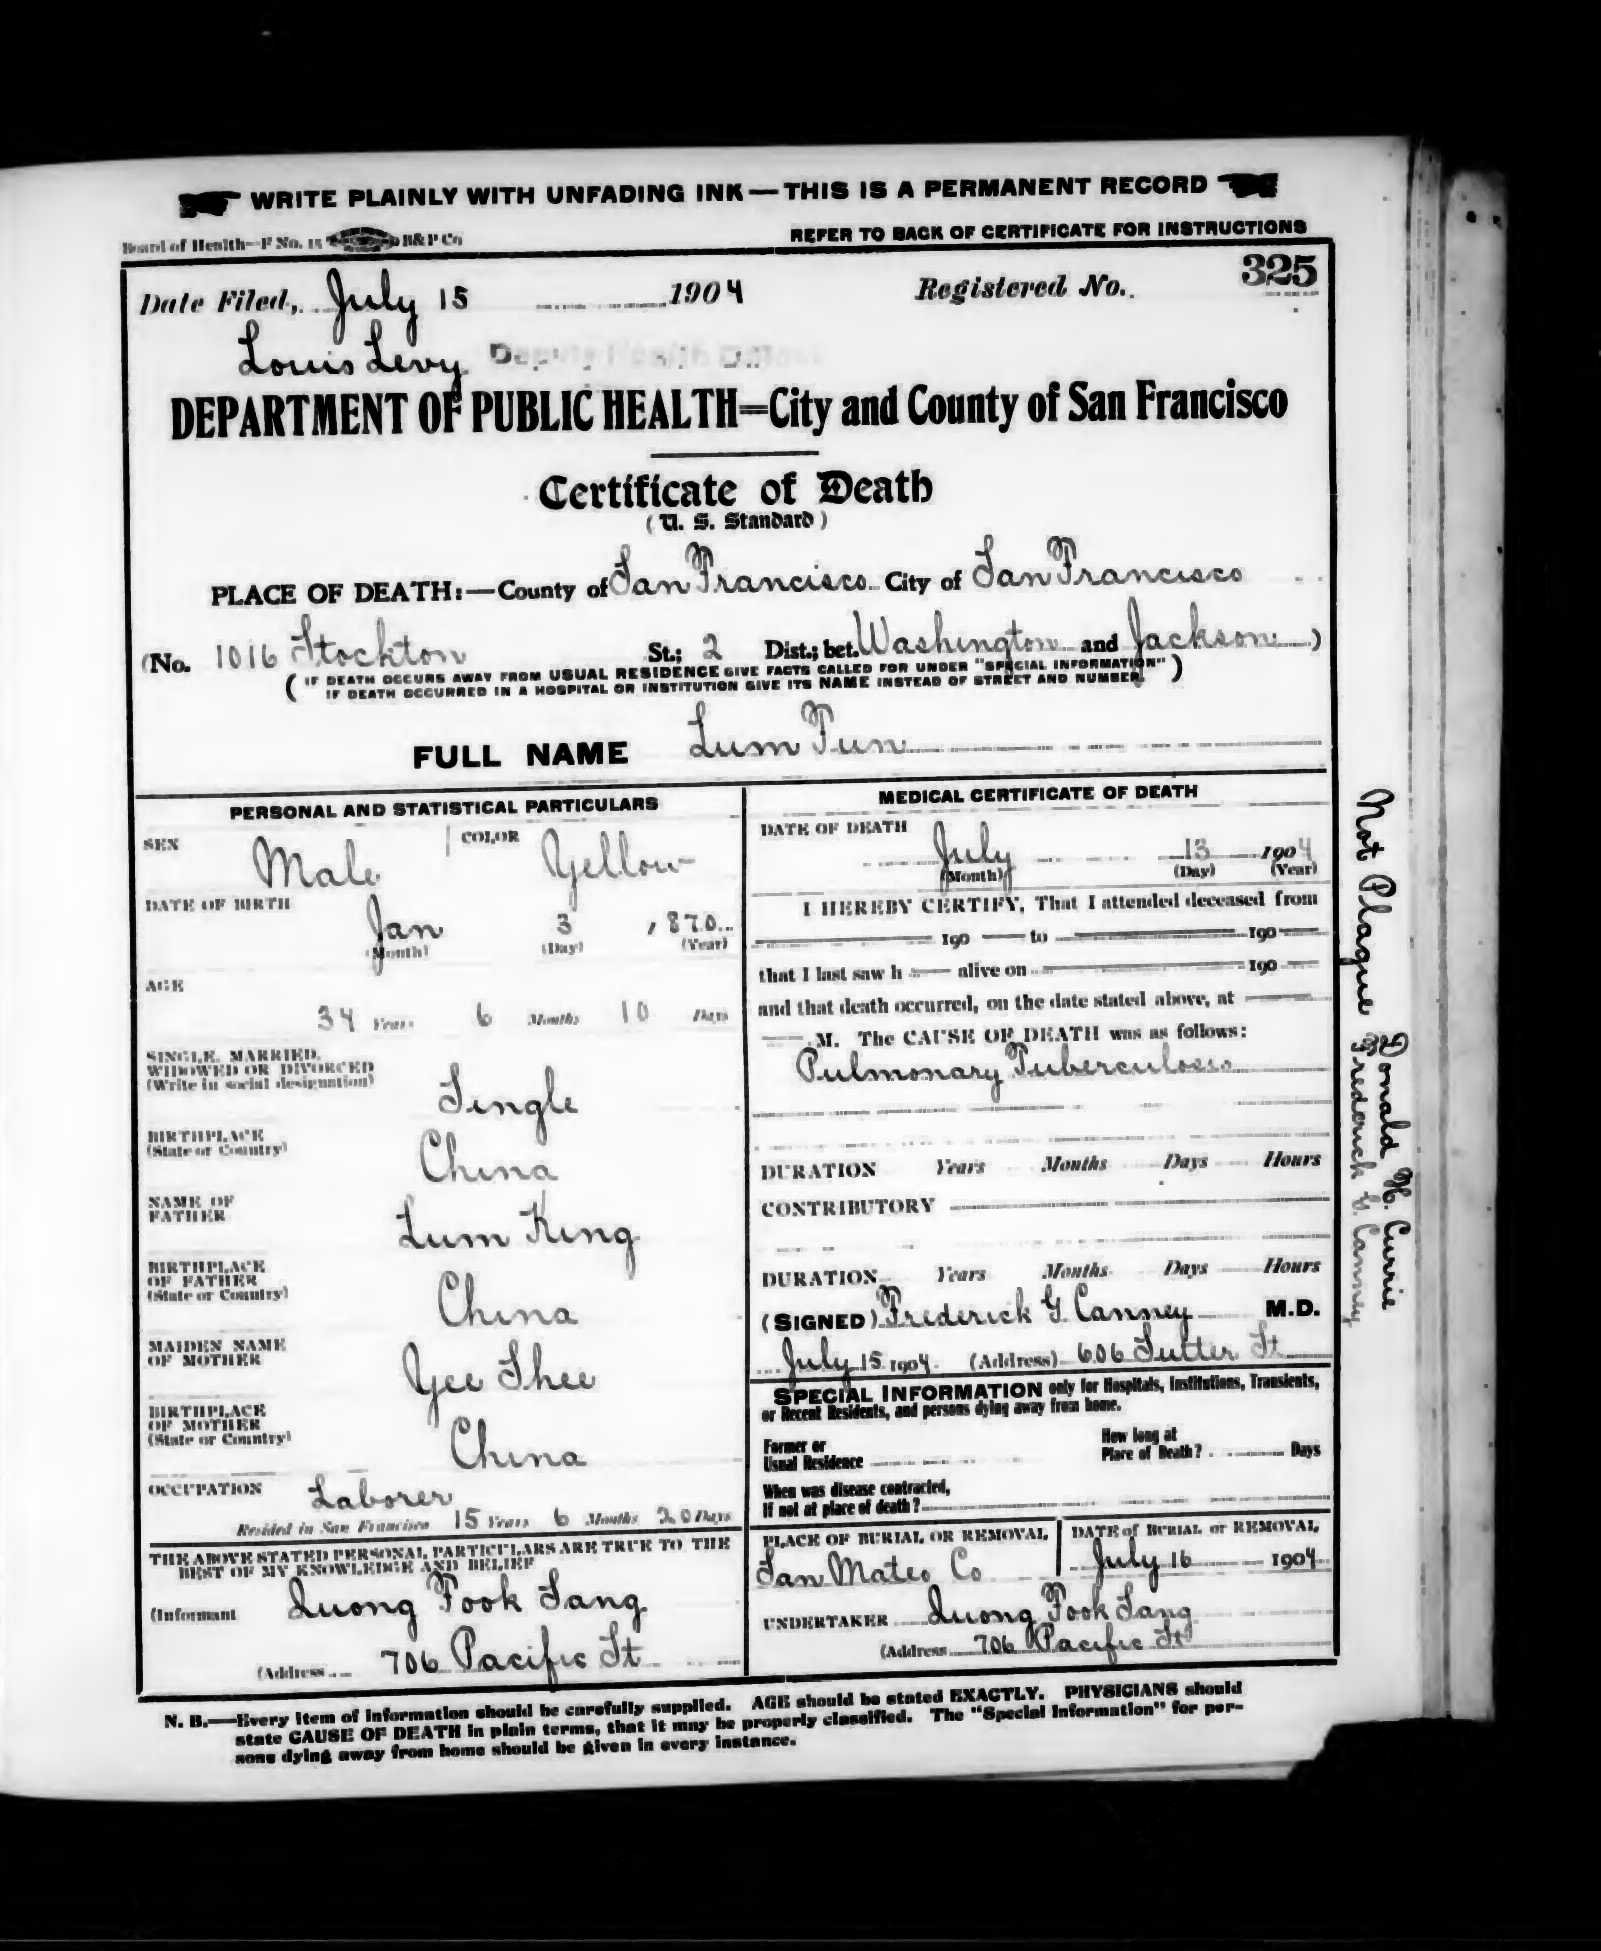 WRITE PLAINLY WITH UNFADING INK—THIS IS A PERMANENT RECORD
Board of Health—F No. 15 B&P Co
REFER TO BACK OF CERTIFICATE FOR INSTRUCTIONS
Date Filed, July 15 1904 Registered No. 325
Louis Levy Deputy Health Officer
DEPARTMENT OF PUBLIC HEALTH=City and County of San Francisco
Certificate of Death
(U. S. Standard)
PLACE OF DEATH:—County of San Francisco City of San Francisco
(No. 1016 Stockton St.; 2 Dist.; bet. Washington and Jackson)
( IF DEATH OCCURS AWAY FROM USUAL RESIDENCE GIVE FACTS CALLED FOR UNDER "SPECIAL INFORMATION" )
IF DEATH OCCURRED IN A HOSPITAL OR INSTITUTION GIVE ITS NAME INSTEAD OF STREET AND NUMBER.
FULL NAME Lum Tun
PERSONAL AND STATISTICAL PARTICULARS
SEX Male COLOR Yellow
DATE OF BIRTH
Jan 3 1870
(Month) (Day) (Year)
AGE
34 Years 6 Months 10 Days
SINGLE, MARRIED,
WIDOWED OR DIVORCED
(Write in social designation)
Single
BIRTHPLACE
(State or Country)
China
NAME OF
FATHER
Lum King
BIRTHPLACE
OF FATHER
(State or Country)
China
MAIDEN NAME
OF MOTHER
Yee Shee
BIRTHPLACE
OF MOTHER
(State or Country)
China
OCCUPATION Laborer
Resided in San Francisco 15 Years 6 Months 20 Days
THE ABOVE STATED PERSONAL PARTICULARS ARE TRUE TO THE
BEST OF MY KNOWLEDGE AND BELIEF
(Informant Quong Fook Sang
(Address 706 Pacific St
MEDICAL CERTIFICATE OF DEATH
DATE OF DEATH
July 13 1904
(Month) (Day) (Year)
I HEREBY CERTIFY, That I attended deceased from
190 to 190
that I last saw h alive on 190
and that death occurred, on the date stated above, at
M. The CAUSE OF DEATH was as follows:
Pulmonary Tuberculosis
DURATION Years Months Days Hours
CONTRIBUTORY
DURATION Years Months Days Hours
(SIGNED) Frederick G. Canney M.D.
July 15 1904. (Address) 606 Sutter St
SPECIAL INFORMATION only for Hospitals, Institutions, Transients,
or Recent Residents, and persons dying away from home.
Former or
Usual Residence
How long at
Place of Death? Days
When was disease contracted,
If not at place of death?
PLACE OF BURIAL OR REMOVAL
San Mateo Co
DATE of BURIAL or REMOVAL
July 16 1904
UNDERTAKER Quong Fook Sang
(Address 706 Pacific St
N. B.—Every item of information should be carefully supplied. AGE should be stated EXACTLY. PHYSICIANS should
state CAUSE OF DEATH in plain terms, that it may be properly classified. The "Special Information" for per-
sons dying away from home should be given in every instance.
Not Plague Donald H. Currie
Frederick G. Canney